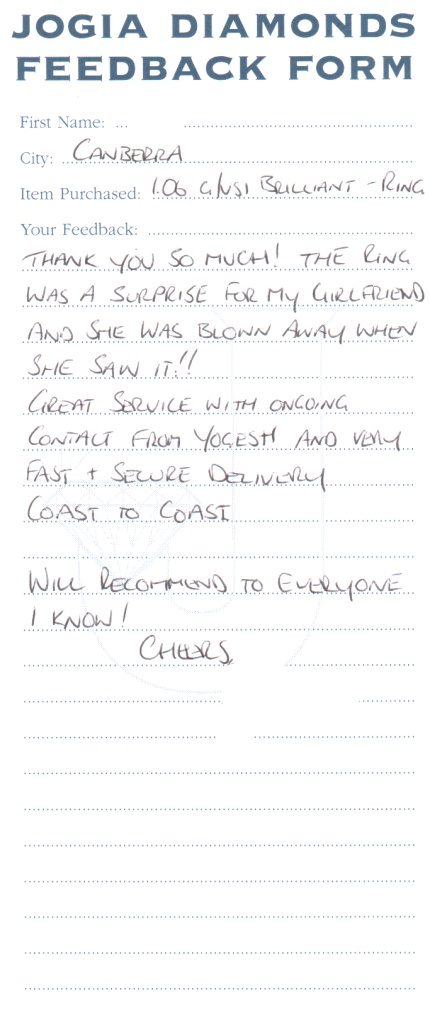 JOGIA DIAMONDS
FEEDBACK FORM
First Name: ...
City: CANBERRA
Item Purchased: 1.06 G/VS1 BRILLIANT - RING
Your Feedback:
THANK YOU SO MUCH! THE RING
WAS A SURPRISE FOR MY GIRLFRIEND
AND SHE WAS BLOWN AWAY WHEN
SHE SAW IT!!
GREAT SERVICE WITH ONGOING
CONTACT FROM YOGESH AND VERY
FAST + SECURE DELIVERY
COAST TO COAST
WILL RECOMMEND TO EVERYONE
I KNOW!
CHEERS,